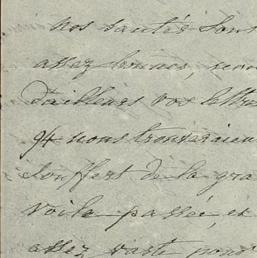 nos santés sont
assez bonnes,
d'ailleurs vos lettre
nous trouverien
souffert de la gra
voilà passée, et
assez vaste pour